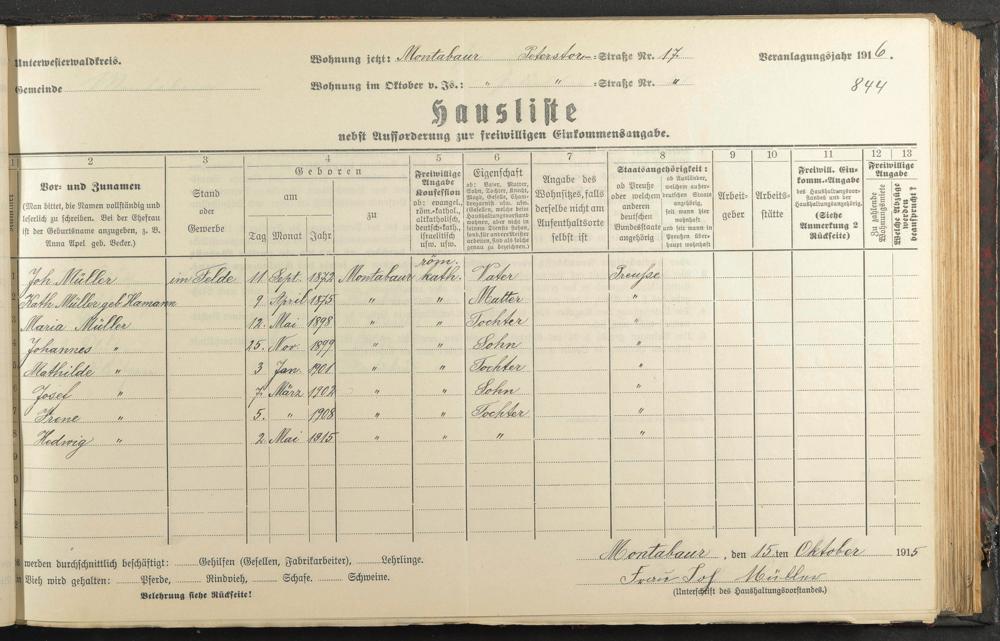 Unterwesterwaldkreis. Wohnung jetzt: Montabaur Peterstor-Straße Nr. 17 Veranlagungsjahr 1916.
Gemeinde Wohnung im Oktober v. Js.: " " -Straße Nr. " 844
Hausliste
nebst Aufforderung zur freiwilligen Einkommensangabe.
1 2 3 4 5 6 7 8 9 10 11 12 13
Vor- und Zunamen
(Man bittet, die Namen vollständig und
leserlich zu schreiben. Bei der Ehefrau
ist der Geburtsname anzugeben, z. B.
Anna Apel geb. Becker.)
Stand
oder
Gewerbe
Geboren
am
Tag Monat Jahr
zu
Freiwillige
Angabe
Konfession
ob: evangel.,
röm.-kathol.,
altkatholisch,
deutsch-kath.,
israelitisch
usw. usw.
Eigenschaft
ob: Vater, Mutter,
Sohn, Tochter, Knecht,
Magd, Geselle, Cham-
bregarnist usw. usw.
(Gesellen, welche beim
Haushaltungsvorstand
wohnen, aber nicht in
seinem Dienste stehen,
sond. für andere Meister
arbeiten, sind als solche
genau zu bezeichnen.)
Angabe des
Wohnsitzes, falls
derselbe nicht am
Aufenthaltsorte
selbst ist
Staatsangehörigkeit:
ob Preuße
oder welchem
anderen
deutschen
Bundesstaate
angehörig
ob Ausländer,
welchem außer-
deutschen Staate
angehörig,
seit wann hier
wohnhaft
und seit wann in
Preußen über-
haupt wohnhaft
Arbeit-
geber
Arbeits-
stätte
Freiwill. Ein-
komm.-Angabe
des Haushaltungsvor-
standes und der
Haushaltungsangehörig.
(Siehe
Anmerkung 2
Rückseite)
Freiwillige
Angabe
Zu zahlende
Wohnungsmiete
Welche Abzüge
werden
beansprucht?
röm.
Joh Müller im Felde 11 Sept. 1872 Montabaur kath. Vater Preusse
Kath. Müller geb Hamann 9 April 1875 " " Mutter "
Maria Müller 12. Mai 1898 " " Tochter "
Johannes " 25. Nov. 1899 " " Sohn "
Mathilde " 3 Jan. 1901 " " Tochter "
Josef " 7. März 1902 " " Sohn "
Irene " 5. " 1908 " " Tochter "
Hedwig " 2. Mai 1915 " " " "
werden durchschnittlich beschäftigt: Gehilfen (Gesellen, Fabrikarbeiter), Lehrlinge. Montabaur, den 15.ten Oktober 1915
Vieh wird gehalten: Pferde, Rindvieh, Schafe. Schweine. Frau Joh Müller
Belehrung siehe Rückseite! (Unterschrift des Haushaltungsvorstandes.)